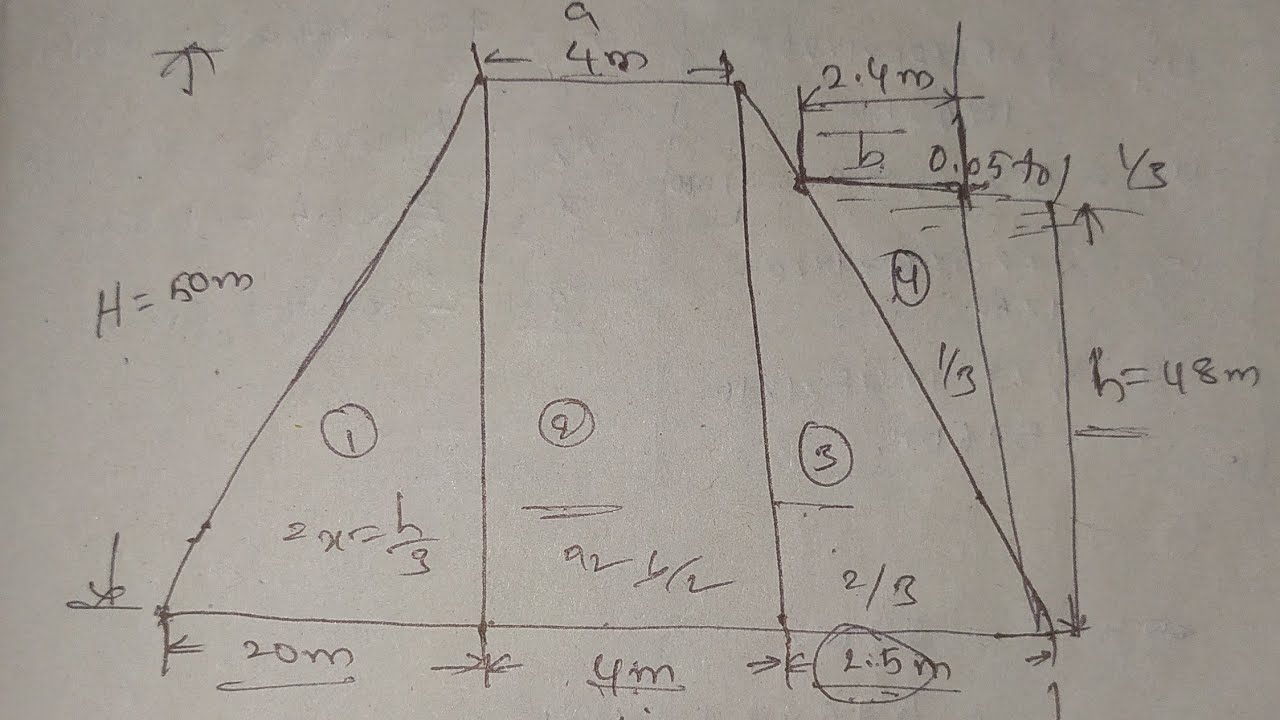 a
4m
2.4m
b
0.05 to 1/3
H = 50m
4
1/3
h = 48m
1
2
3
2x = h/3
2/3
20m
4m
2.5m